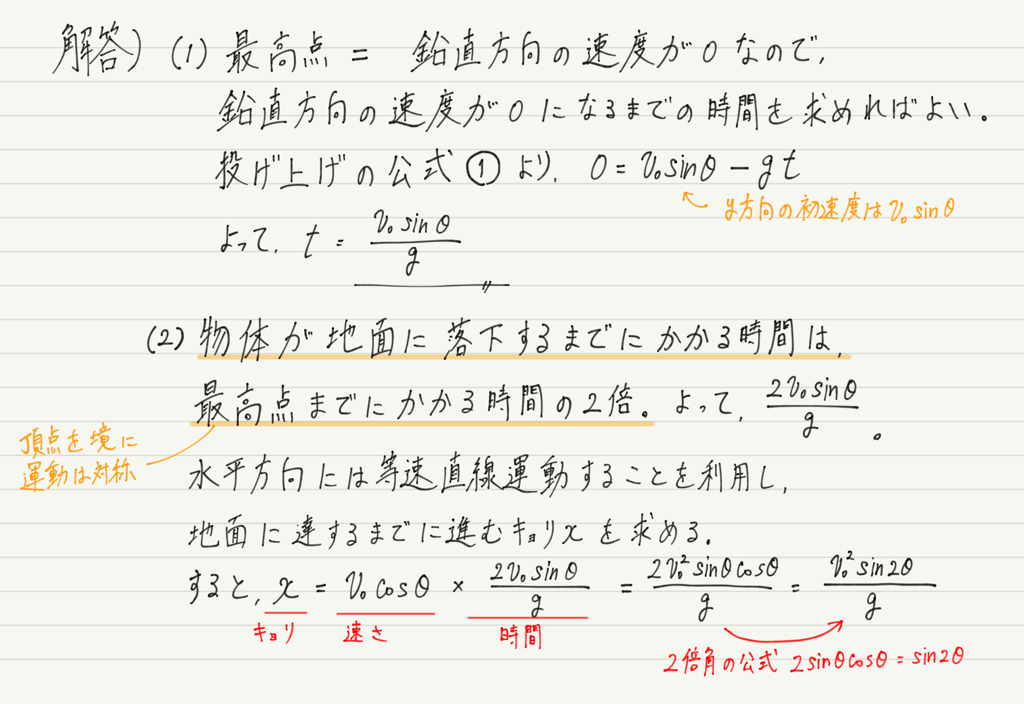 解答) (1) 最高点 = 鉛直方向の速度が0なので,
鉛直方向の速度が0になるまでの時間を求めればよい。
投げ上げの公式①より, 0 = v₀sinθ − gt
y方向の初速度はv₀sinθ
よって, t = v₀sinθ/g
(2) 物体が地面に落下するまでにかかる時間は,
最高点までにかかる時間の2倍。よって, 2v₀sinθ/g 。
頂点を境に
運動は対称
水平方向には等速直線運動することを利用し,
地面に達するまでに進むキョリxを求める.
すると, x = v₀cosθ × 2v₀sinθ/g = 2v₀²sinθcosθ/g = v₀²sin2θ/g
キョリ 速さ 時間
2倍角の公式 2sinθcosθ = sin2θ